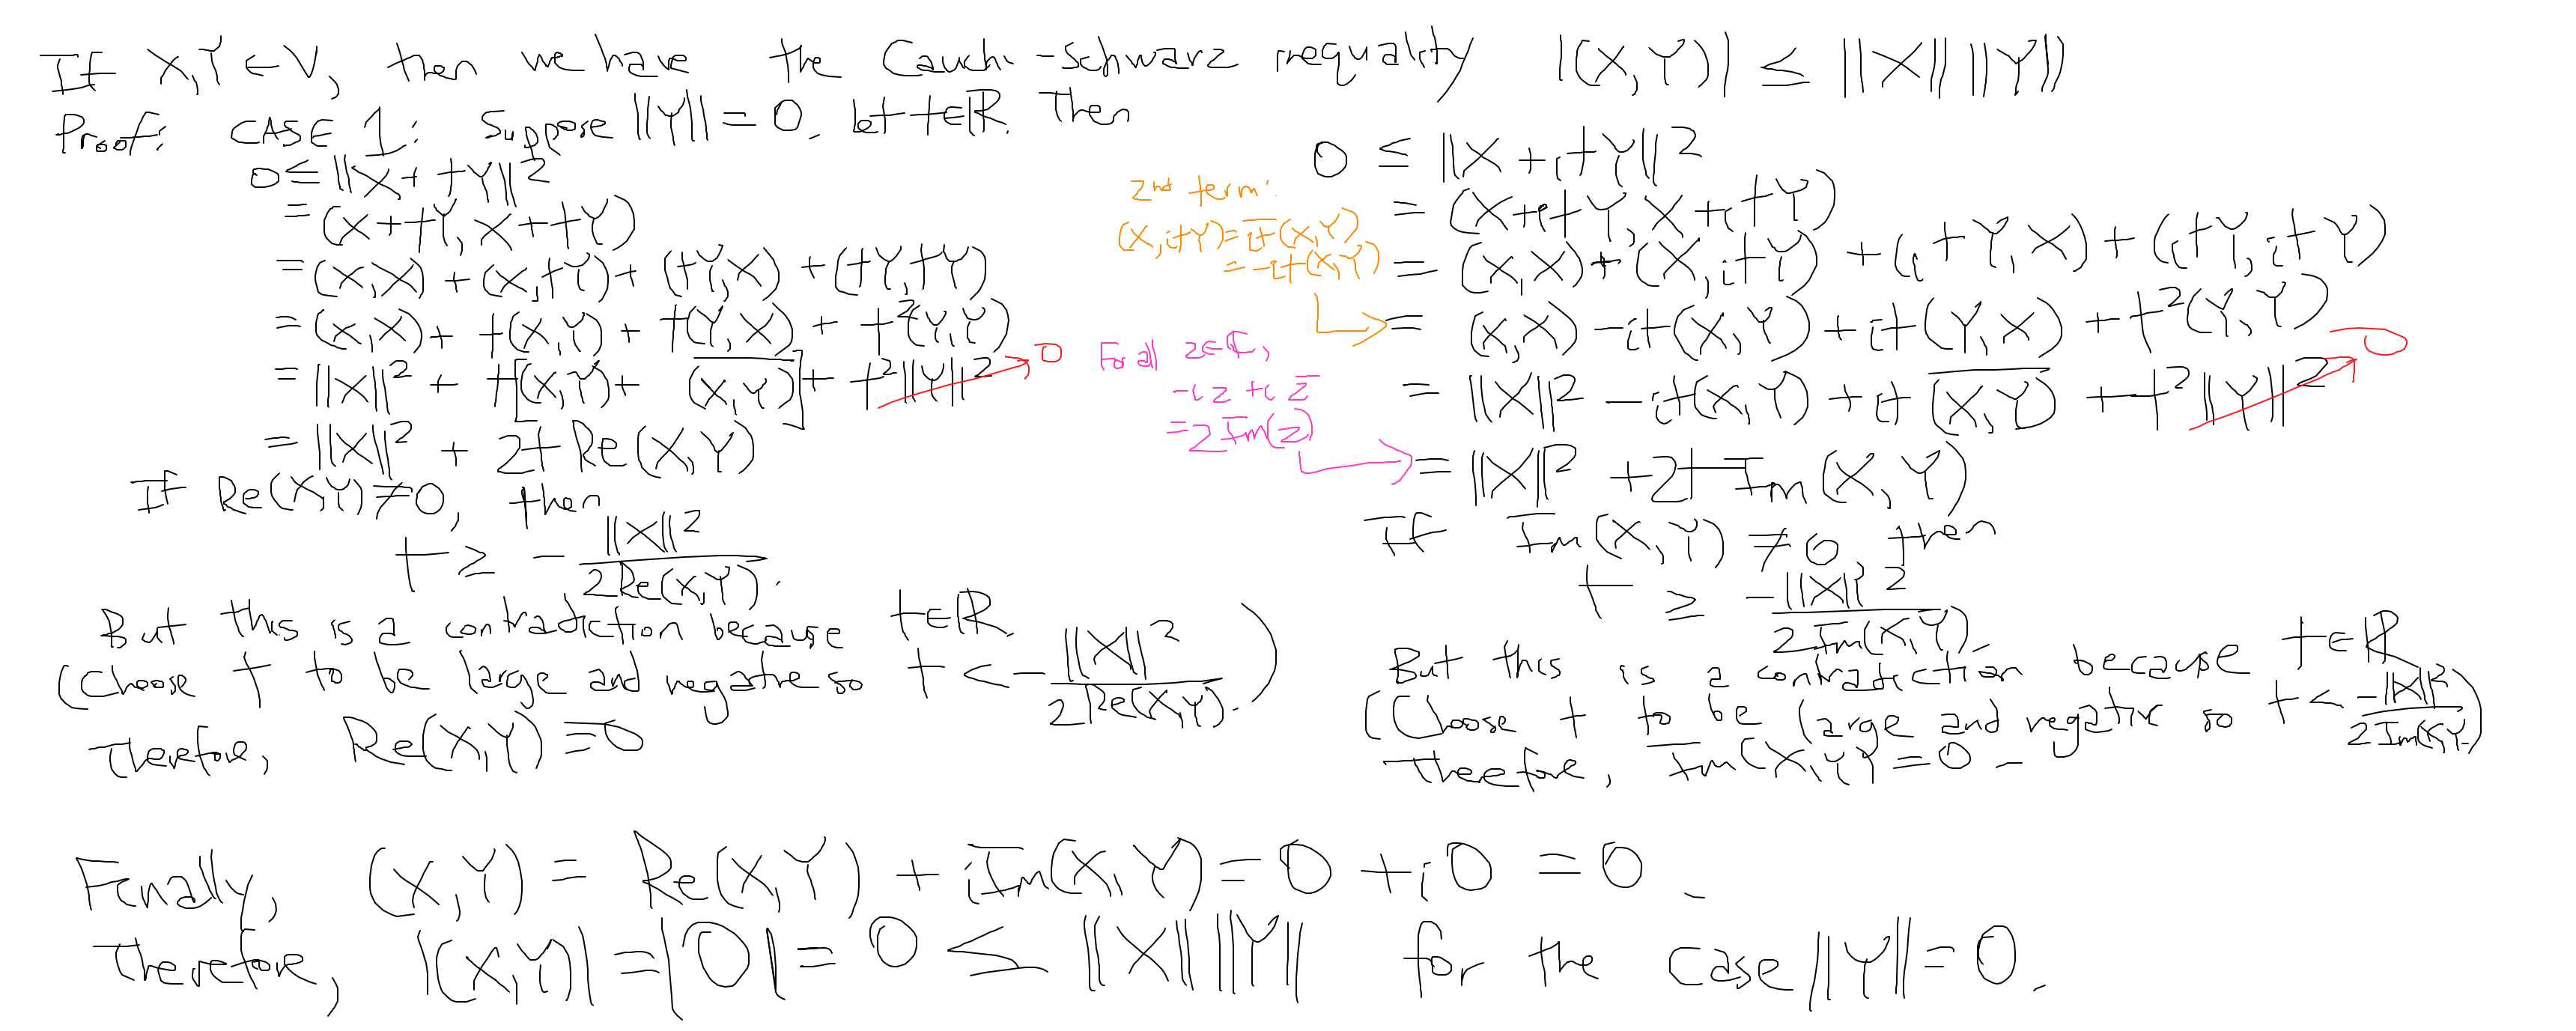 If X,Y ∈ V, then we have the Cauchi-Schwarz inequality |(X,Y)| ≤ ||X|| ||Y||
Proof: CASE 1: Suppose ||Y|| = 0. Let t∈ℝ. Then
0 ≤ ||X + tY||²
= (X+tY, X+tY)
= (X,X) + (X,tY) + (tY,X) + (tY,tY)
= (X,X) + t(X,Y) + t(Y,X) + t²(Y,Y)
= ||X||² + t[(X,Y) + \overline{(X,Y)}] + t²||Y||² → 0
= ||X||² + 2t Re(X,Y)
If Re(X,Y) ≠ 0, then
t ≥ -\frac{||X||²}{2Re(X,Y)}.
But this is a contradiction because t∈ℝ.
(Choose t to be large and negative so t < -\frac{||X||²}{2Re(X,Y)}.)
Therefore, Re(X,Y) = 0
0 ≤ ||X + itY||²
= (X+itY, X+itY)
= (X,X) + (X,itY) + (itY,X) + (itY,itY)
2nd term:
(X,itY) = \overline{it}(X,Y)
= -it(X,Y)
= (X,X) - it(X,Y) + it(Y,X) + t²(Y,Y)
= ||X||² - it(X,Y) + it\overline{(X,Y)} + t²||Y||² → 0
For all z∈ℂ,
-iz + i\overline{z}
= 2Im(z)
= ||X||² + 2t Im(X,Y)
If Im(X,Y) ≠ 0, then
t ≥ \frac{-||X||²}{2Im(X,Y)}.
But this is a contradiction because t∈ℝ
(Choose t to be large and negative so t < \frac{-||X||²}{2Im(X,Y)})
Therefore, Im(X,Y) = 0.
Finally, (X,Y) = Re(X,Y) + iIm(X,Y) = 0 + i0 = 0.
Therefore, |(X,Y)| = |0| = 0 ≤ ||X|| ||Y|| for the case ||Y|| = 0.